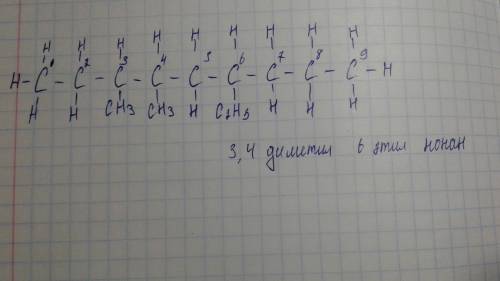 H H H H H H H H H
H - C¹ - C² - C³ - C⁴ - C⁵ - C⁶ - C⁷ - C⁸ - C⁹ - H
H H CH3 CH3 H C2H5 H H H
3,4 диметил 6 этил нонан